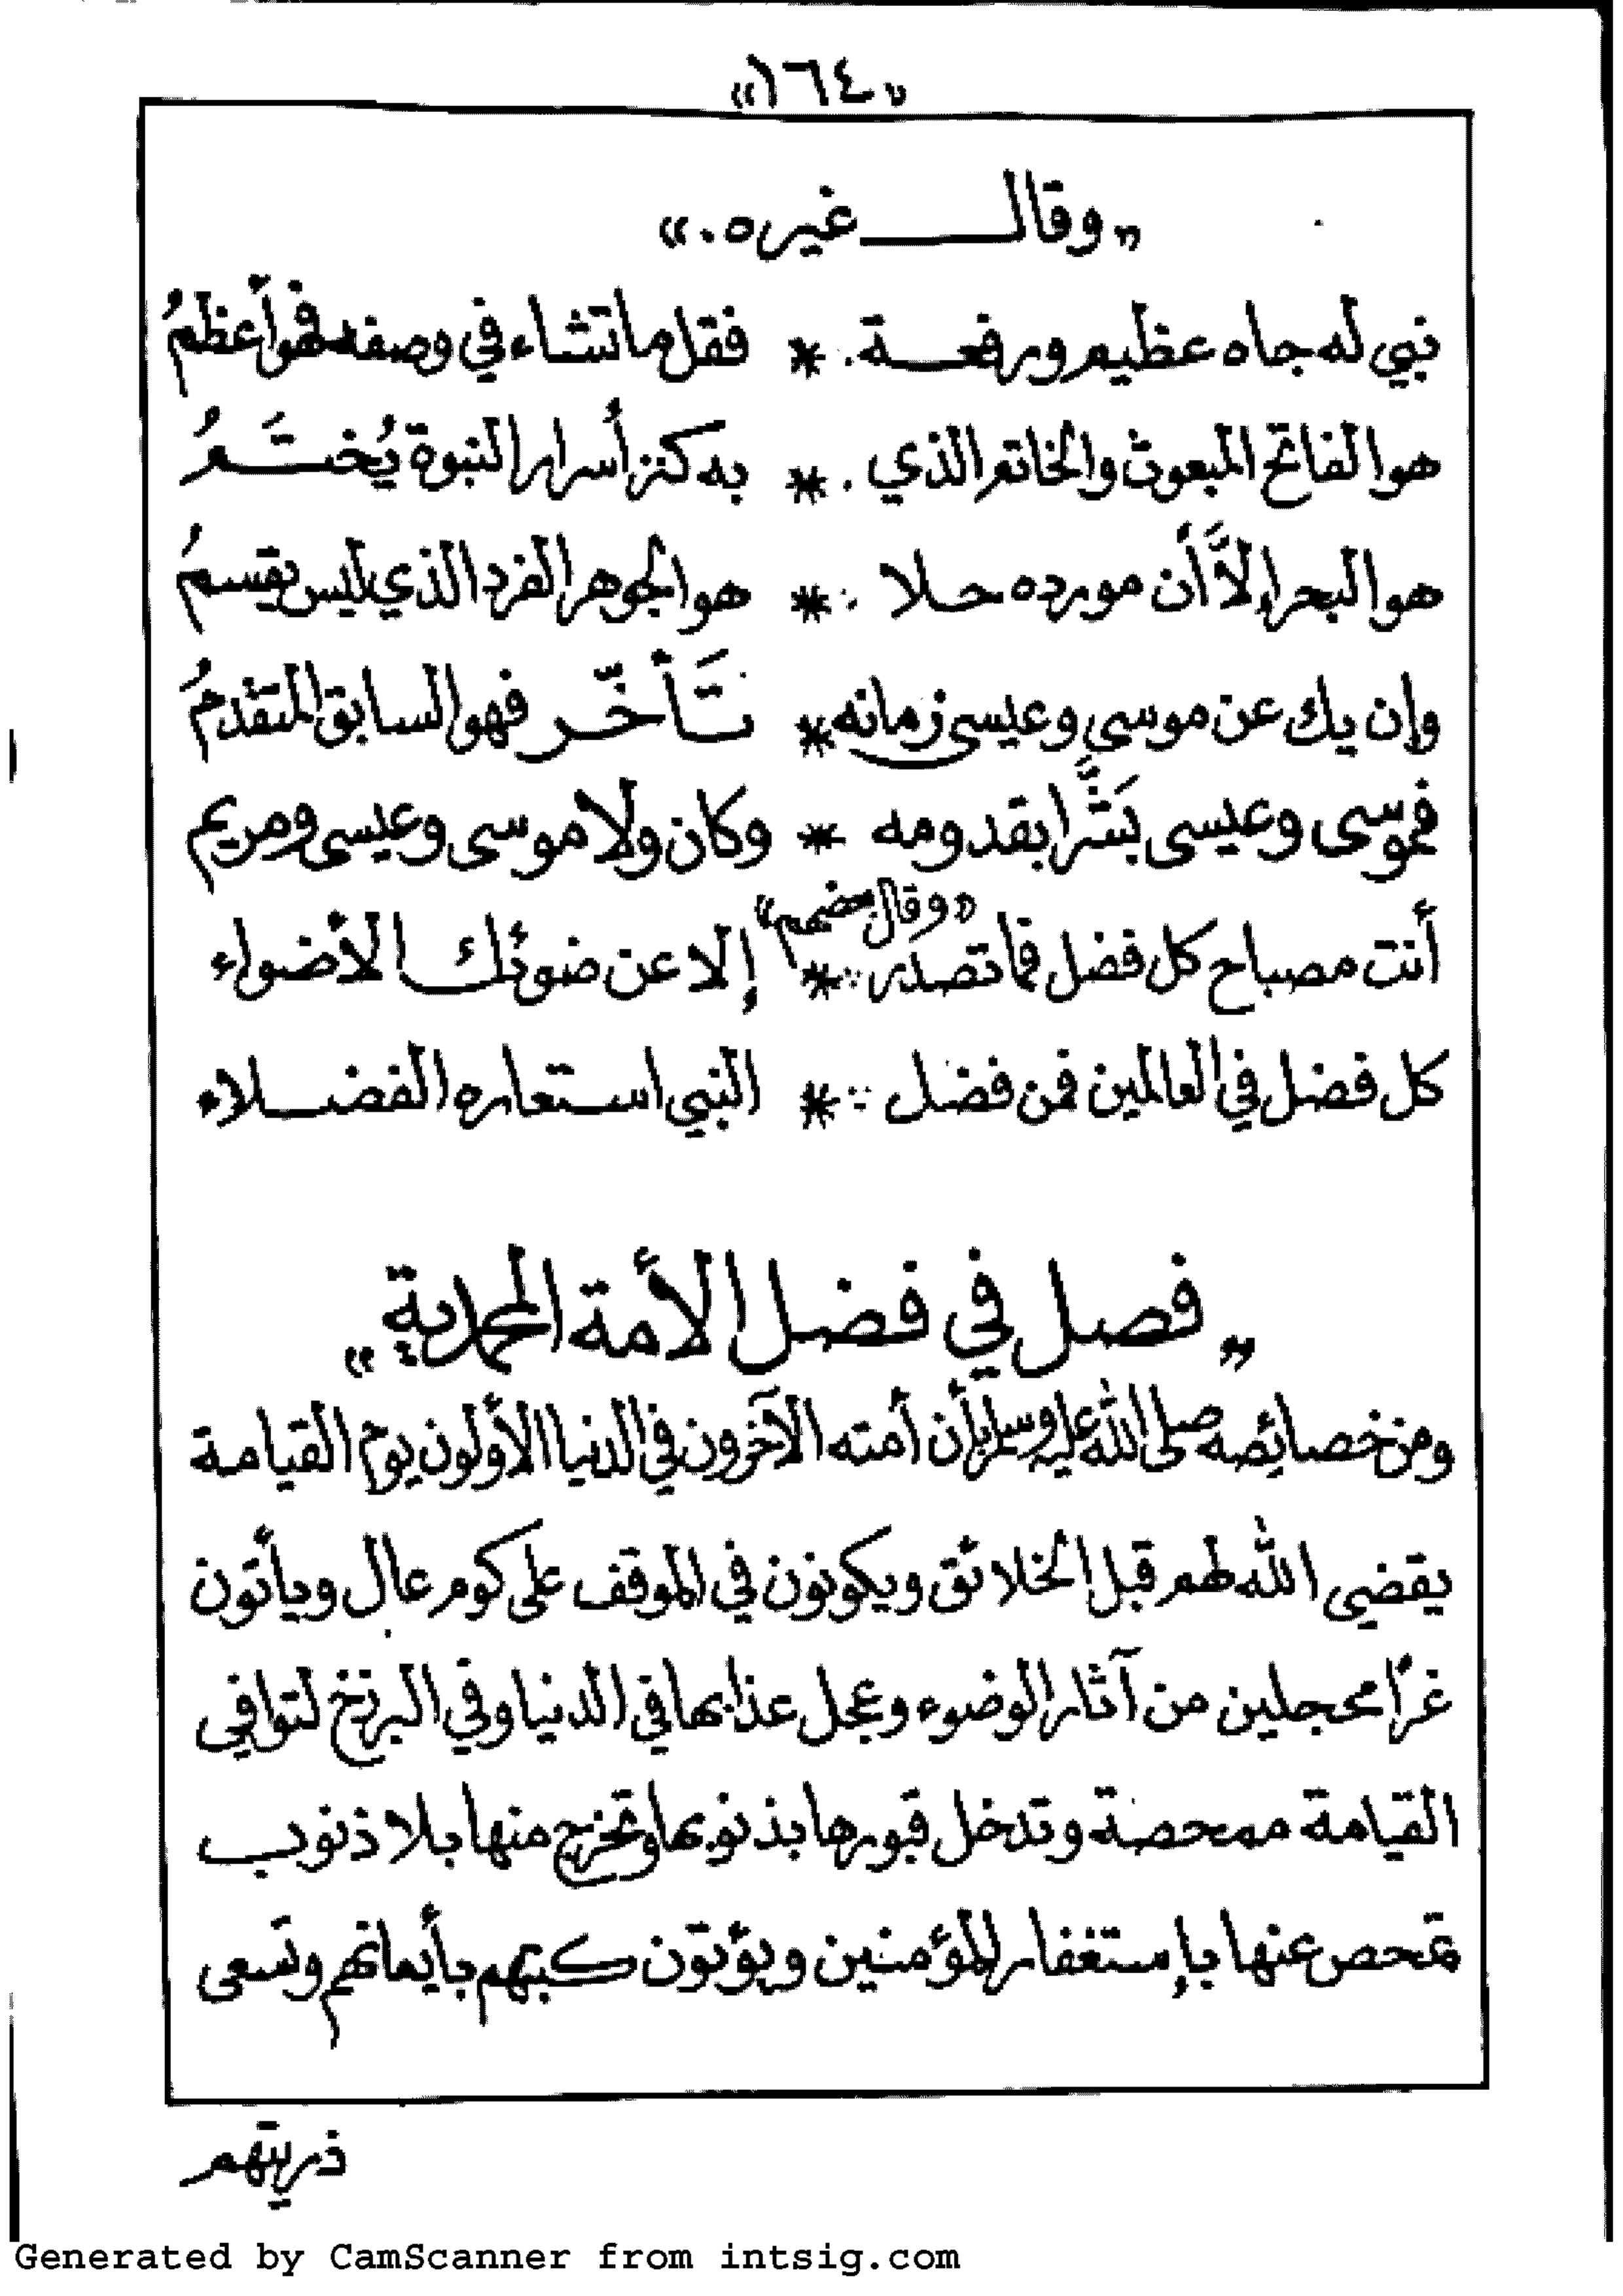 «١٦٤»
«وقال غيره.»
نبي له جاه عظيم ورفعة. * فقل ما تشاء في وصفه فهو أعظمُ
هو الفاتح المبعوث والخاتم الذي. * به كنز أسرار النبوة يُختَمُ
هو البحر إلاَّ أن مورده حلا * هو الجوهر الفرد الذي ليس يقسمُ
وإن يك عن موسى وعيسى زمانه * تَأخّر فهو السابق المتقدمُ
فموسى وعيسى بَشَّرا بقدومه * وكان ولا موسى وعيسى ومريم
«وقال بعضهم»
أنت مصباح كل فضل فما تصدر * إلا عن ضوئك الأضواء
كل فضل في العالمين فمن فضل * النبي استعاره الفضلاء
«فصل في فضل الأمة المحمدية»
ومن خصائصه صلى الله عليه وسلم بأن أمته الآخرون في الدنيا الأولون يوم القيامة
يقضي الله لهم قبل الخلائق ويكونون في الموقف على كوم عال ويأتون
غرًا محجلين من آثار الوضوء وعجل عذابها في الدنيا وفي البرزخ لتوافي
القيامة ممحصة وتدخل قبورها بذنوبها وتخرج منها بلا ذنوب
تمحص عنها بإستغفار المؤمنين ويؤتون كتبهم بأيمانهم وتسعى
ذريتهم
Generated by CamScanner from intsig.com